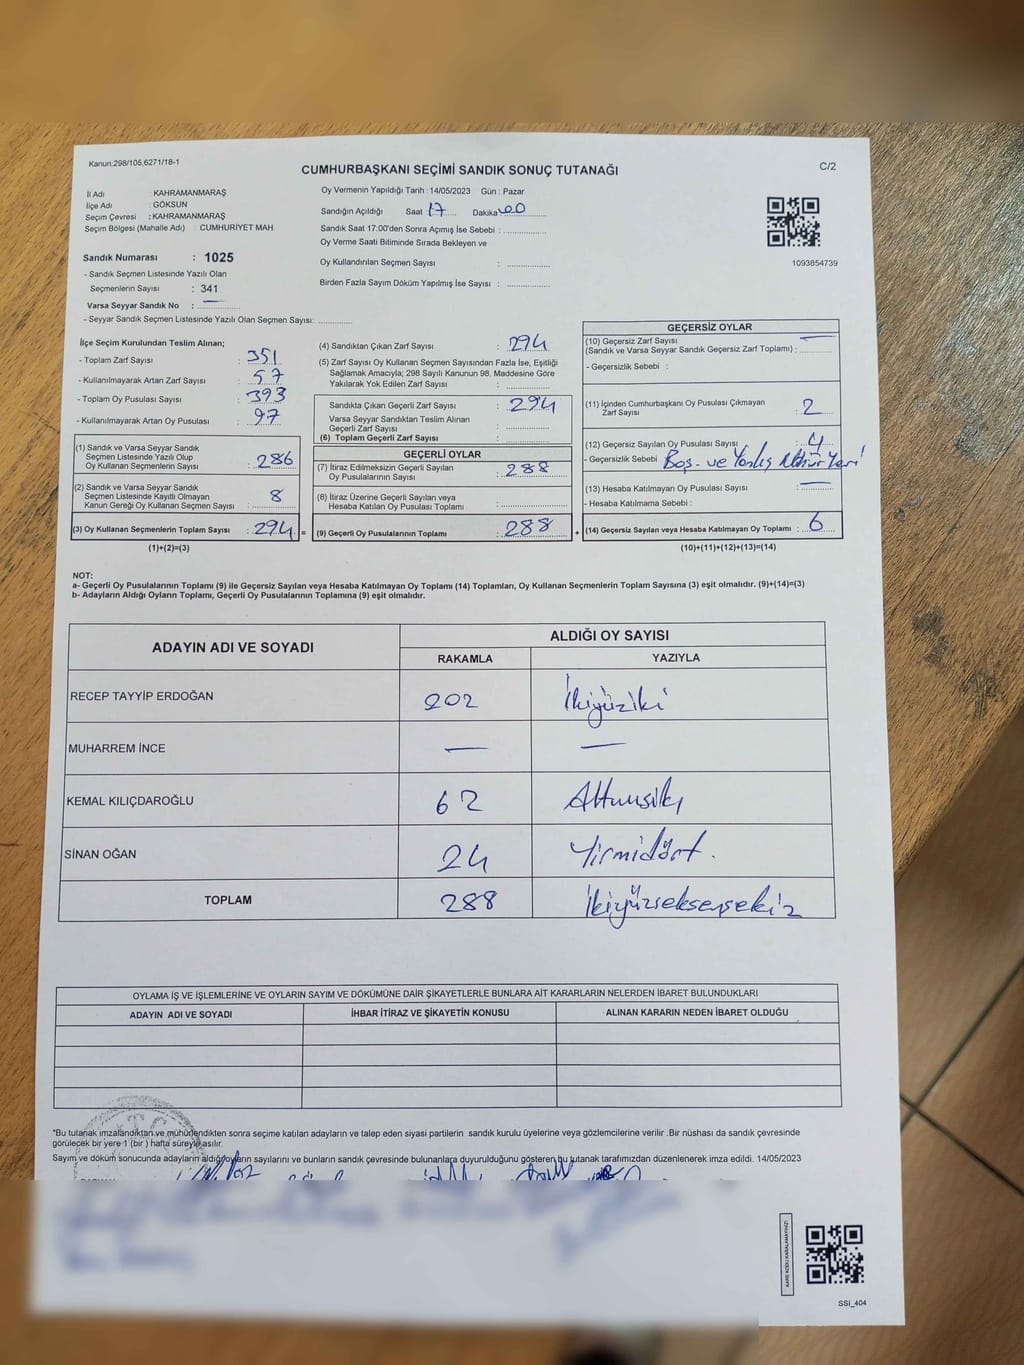 Kanun;298/105,6271/18-1
CUMHURBAŞKANI SEÇİMİ SANDIK SONUÇ TUTANAĞI
C/2
İl Adı : KAHRAMANMARAŞ
İlçe Adı : GÖKSUN
Seçim Çevresi : KAHRAMANMARAŞ
Seçim Bölgesi (Mahalle Adı) : CUMHURİYET MAH.
Sandık Numarası : 1025
- Sandık Seçmen Listesinde Yazılı Olan
Seçmenlerin Sayısı : 341
Varsa Seyyar Sandık No : —
- Seyyar Sandık Seçmen Listesinde Yazılı Olan Seçmen Sayısı: ............
Oy Vermenin Yapıldığı Tarih : 14/05/2023 Gün : Pazar
Sandığın Açıldığı Saat 17 Dakika 00
Sandık Saat 17:00'den Sonra Açımış İse Sebebi : ............
Oy Verme Saati Bitiminde Sırada Bekleyen ve
Oy Kullandırılan Seçmen Sayısı : ............
Birden Fazla Sayım Döküm Yapılmış İse Sayısı : ............
1093854739
İlçe Seçim Kurulundan Teslim Alınan;
- Toplam Zarf Sayısı : 351
- Kullanılmayarak Artan Zarf Sayısı : 57
- Toplam Oy Pusulası Sayısı : 393
- Kullanılmayarak Artan Oy Pusulası : 97
(1) Sandık ve Varsa Seyyar Sandık
Seçmen Listesinde Yazılı Olup
Oy Kullanan Seçmenlerin Sayısı : 286
(2) Sandık ve Varsa Seyyar Sandık
Seçmen Listesinde Kayıtlı Olmayan
Kanun Gereği Oy Kullanan Seçmen Sayısı : 8
(3) Oy Kullanan Seçmenlerin Toplam Sayısı : 294 =
(1)+(2)=(3)
(4) Sandıktan Çıkan Zarf Sayısı : 294
(5) Zarf Sayısı Oy Kullanan Seçmen Sayısından Fazla İse, Eşitliği
Sağlamak Amacıyla; 298 Sayılı Kanunun 98. Maddesine Göre
Yakılarak Yok Edilen Zarf Sayısı : ............
Sandıkta Çıkan Geçerli Zarf Sayısı : 294
Varsa Seyyar Sandıktan Teslim Alınan
Geçerli Zarf Sayısı : ............
(6) Toplam Geçerli Zarf Sayısı : ............
GEÇERLİ OYLAR
(7) İtiraz Edilmeksizin Geçerli Sayılan
Oy Pusulalarının Sayısı : 288
(8) İtiraz Üzerine Geçerli Sayılan veya
Hesaba Katılan Oy Pusulası Toplamı : ............
(9) Geçerli Oy Pusulalarının Toplamı : 288 +
GEÇERSİZ OYLAR
(10) Geçersiz Zarf Sayısı
(Sandık ve Varsa Seyyar Sandık Geçersiz Zarf Toplamı) : —
- Geçersizlik Sebebi :
(11) İçinden Cumhurbaşkanı Oy Pusulası Çıkmayan
Zarf Sayısı : 2
(12) Geçersiz Sayılan Oy Pusulası Sayısı : 4
- Geçersizlik Sebebi Boş - ve Yanlış Mühür Yeri
(13) Hesaba Katılmayan Oy Pusulası Sayısı : —
- Hesaba Katılmama Sebebi :
(14) Geçersiz Sayılan veya Hesaba Katılmayan Oy Toplamı : 6
(10)+(11)+(12)+(13)=(14)
NOT:
a- Geçerli Oy Pusulalarının Toplamı (9) ile Geçersiz Sayılan veya Hesaba Katılmayan Oy Toplamı (14) Toplamları, Oy Kullanan Seçmenlerin Toplam Sayısına (3) eşit olmalıdır. (9)+(14)=(3)
b- Adayların Aldığı Oyların Toplamı, Geçerli Oy Pusulalarının Toplamına (9) eşit olmalıdır.
ADAYIN ADI VE SOYADI
ALDIĞI OY SAYISI
RAKAMLA YAZIYLA
RECEP TAYYİP ERDOĞAN 202 İkiyüziki
MUHARREM İNCE — —
KEMAL KILIÇDAROĞLU 62 Altmışiki
SİNAN OĞAN 24 Yirmidört.
TOPLAM 288 İkiyüzseksensekiz
OYLAMA İŞ VE İŞLEMLERİNE VE OYLARIN SAYIM VE DÖKÜMÜNE DAİR ŞİKAYETLERLE BUNLARA AİT KARARLARIN NELERDEN İBARET BULUNDUKLARI
ADAYIN ADI VE SOYADI İHBAR İTİRAZ VE ŞİKAYETİN KONUSU ALINAN KARARIN NEDEN İBARET OLDUĞU
*Bu tutanak imzalandıktan ve mühürlendikten sonra seçime katılan adayların ve talep eden siyasi partilerin sandık kurulu üyelerine veya gözlemcilerine verilir .Bir nüshası da sandık çevresinde
görülecek bir yere 1 (bir ) hafta süreyle asılır.
Sayım ve döküm sonucunda adayların aldığı oyların sayılarını ve bunların sandık çevresinde bulunanlara duyurulduğunu gösteren bu tutanak tarafımızdan düzenlenerek imza edildi. 14/05/2023
SSI_404